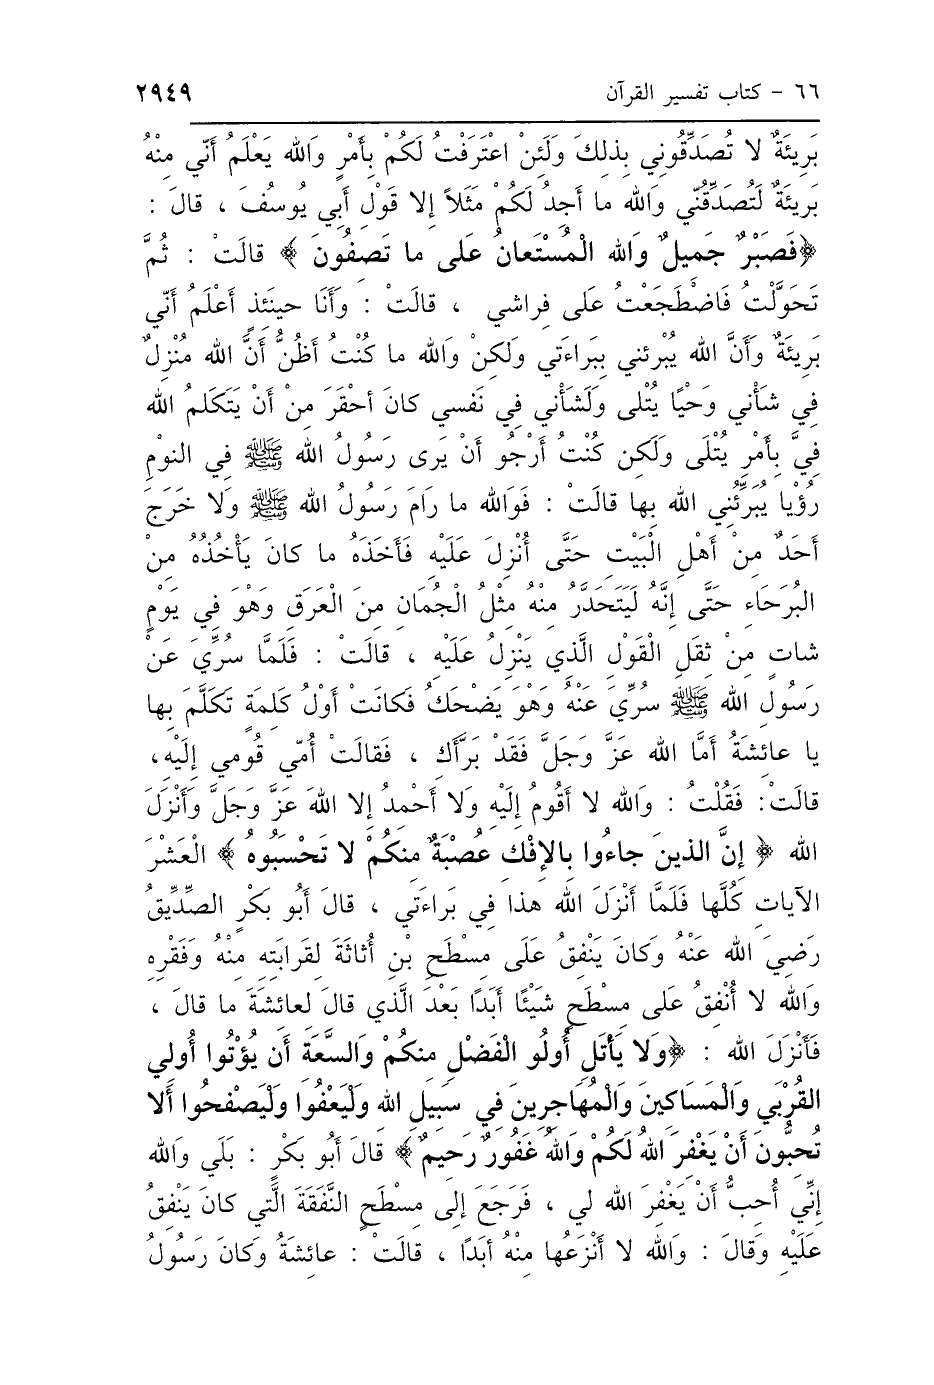 ٦٦ - كتاب تفسير القرآن ٢٩٤٩
بَرِيئَةٌ لا تُصَدِّقُونِي بِذلِكَ وَلَئِنْ اعْتَرَفْتُ لَكُمْ بِأَمْرٍ وَالله يَعْلَمُ أَنّي مِنْهُ
بَرِيئَةٌ لَتُصَدِّقُنّي وَالله ما أَجِدُ لَكُمْ مَثَلاً إلا قَوْلِ أَبِي يُوسُفَ ، قالَ :
﴿فَصَبْرٌ جَمِيلٌ وَالله الْمُسْتَعانُ عَلى ما تَصِفُونَ ﴾ قالَتْ : ثُمَّ
تَحَوَّلْتُ فَاضْطَجَعْتُ عَلى فِراشي ، قالَتْ : وَأَنَا حِينَئِذٍ أَعْلَمُ أَنّي
بَرِيئَةٌ وَأَنَّ الله يُبْرِئني بِبَراءَتي وَلَكِنْ وَالله ما كُنْتُ أَظُنُّ أَنَّ الله مُنْزِلٌ
فِي شَأْنِي وَحْيًا يُتْلى وَلَشَأْني فِي نَفسي كانَ أحْقَرَ مِنْ أَنْ يَتَكَلمُ الله
فِيَّ بِأَمْرٍ يُتْلَى وَلَكِن كُنْتُ أَرْجُو أَنْ يَرى رَسُولُ الله ﷺ فِي النومِ
رُؤْيا يُبَرِّئُني الله بِها قالَتْ : فَوَالله ما رَامَ رَسُولُ الله ﷺ وَلا خَرَجَ
أَحَدٌ مِنْ أَهْلِ الْبَيْتِ حَتَّى أُنْزِلَ عَلَيْهِ فَأَخَذَهُ ما كانَ يَأْخُذُهُ مِنْ
البُرَحَاءِ حَتَّى إِنَّهُ لَيَتَحَدَّرُ مِنْهُ مِثْلُ الْجُمَانِ مِنَ الْعَرَقِ وَهْوَ فِي يَوْمٍ
شاتٍ مِنْ ثِقَلِ الْقَوْلِ الَّذِي يَنْزِلُ عَلَيْهِ ، قالَتْ : فَلَمَّا سُرِّيَ عَنْ
رَسُولِ الله ﷺ سُرِّيَ عَنْهُ وَهْوَ يَضْحَكُ فَكانَتْ أَوْلُ كَلِمَةٍ تَكَلَّمَ بِها
يا عائِشَةُ أَمَّا الله عَزَّ وَجَلَّ فَقَدْ بَرَّأَكِ ، فَقالَتْ أُمّي قُومي إِلَيْهِ،
قالَتْ: فَقُلْتُ : وَالله لا أَقُومُ إِلَيْهِ وَلا أَحْمِدُ إلا اللهَ عَزَّ وَجَلَّ وَأَنْزَلَ
الله ﴿ إِنَّ الذينَ جاءُوا بِالإفْكِ عُصْبَةٌ مِنكُمْ لا تَحْسَبُوه ﴾ الْعَشْرَ
الآياتِ كُلَّها فَلَمَّا أَنْزَلَ الله هذا فِي بَراءَتي ، قالَ أَبُو بَكْرٍ الصِّدِّيقُ
رَضِيَ الله عَنْهُ وَكانَ يَنْفِقُ عَلَى مِسْطَحِ بْنِ أُثاثَةَ لِقَرابَتِهِ مِنْهُ وَفَقْرِهِ
وَالله لا أُنْفِقُ عَلى مِسْطَحٍ شَيْئًا أَبَدًا بَعْدَ الَّذي قالَ لِعائِشَةَ ما قالَ ،
فَأَنْزَلَ الله : ﴿وَلا يَأْتَلِ أُولُو الْفَضْلِ مِنكُمْ وَالسَّعَةِ أَن يُؤْتُوا أُولي
القُرْبَي وَالْمَسَاكينَ وَالْمُهَاجِرِينَ في سَبِيلِ اللهِ وَلْيَعْفُوا وَلْيَصْفَحُوا أَلا
تُحِبُّونَ أَنْ يَغْفِرَ اللهُ لَكُمْ وَاللهُ غَفُورٌ رَحِيمٌ﴾ قالَ أَبُو بَكْرٍ : بَلَي وَالله
إنِّي أُحِبُّ أَنْ يَغْفِرَ الله لي ، فَرَجَعَ إلى مِسْطَحٍ النَّفَقَةَ الَّتي كانَ يَنْفِقُ
عَلَيْهِ وَقالَ : وَالله لا أَنْزَعُها مِنْهُ أَبَدًا ، قالَتْ : عائِشَةُ وَكانَ رَسُولُ